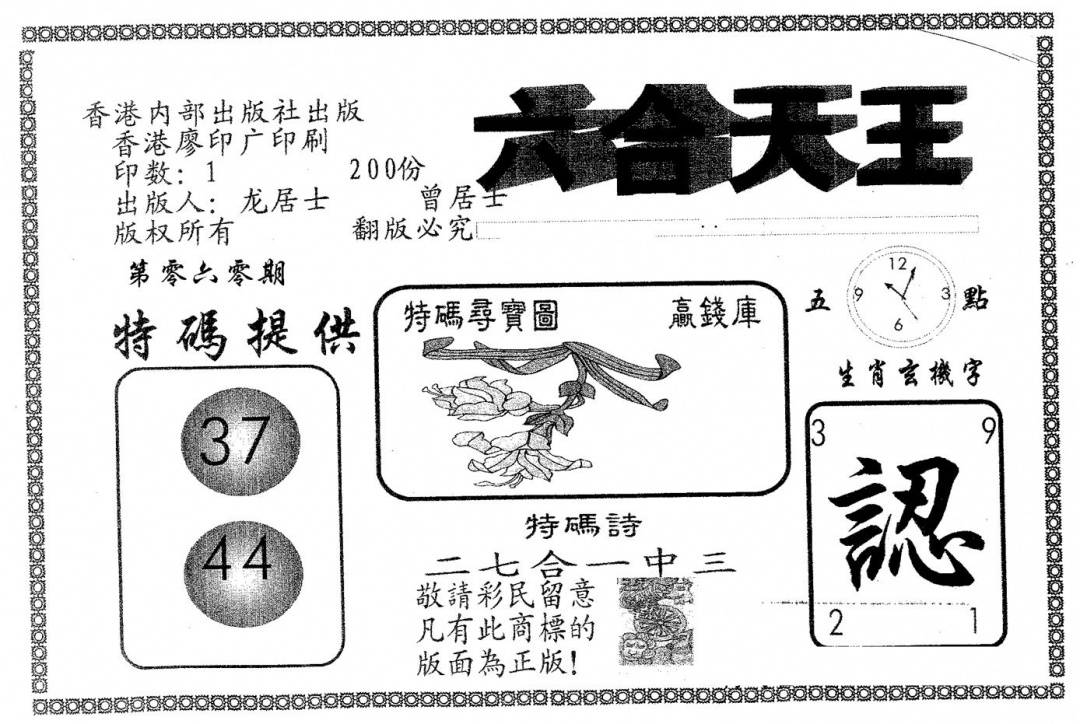 六合天王
香港内部出版社出版
香港廖印广印刷
印数: 1 200份
出版人: 龙居士 曾居士
版权所有 翻版必究
第零六零期
特碼提供
37
44
特碼尋寶圖 贏錢庫
五 點
12
9 3
6
生肖玄機字
3 9
認
2 1
特碼詩
二七合一中三
敬請彩民留意
凡有此商標的
版面為正版!